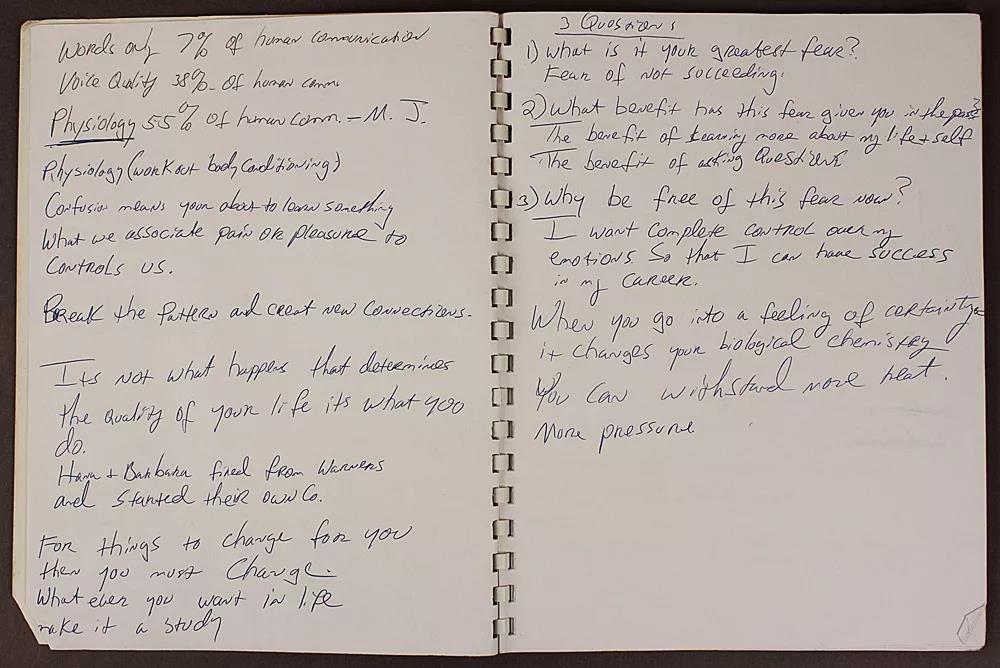 Words only 7% of human communication
Voice Quality 38% of human comm.
Physiology 55% of human Comm. - M. J.
Physiology (work out body Conditioning)
Confusion means your about to learn something
What we associate pain or pleasure to
Controls us.
Break the Pattern and creat new Connections.
Its not what happens that determines
the quality of your life its what you
do.
Hana + Barbara fired from Warners
and started their own Co.
For things to change for you
then you must Change.
What ever you want in life
make it a study
3 Questions
1) What is it your greatest fear?
Fear of not succeeding.
2) What benefit has this fear given you in the past?
The benefit of Learning more about my life + self
The benefit of asking Questions
3) Why be free of this fear now?
I want complete control over my
emotions. So that I can have success
in my career.
When you go into a feeling of certainty
it changes your biological chemistry
You can withstand more heat.
More pressure